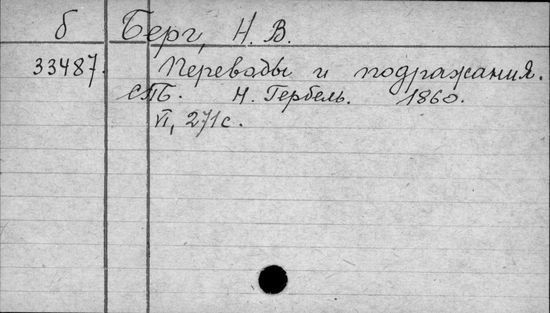 б Берг, Н. В.
33487. Переводы и подражания.
СПБ. Н. Гербель. 1860.
VI, 271 с.